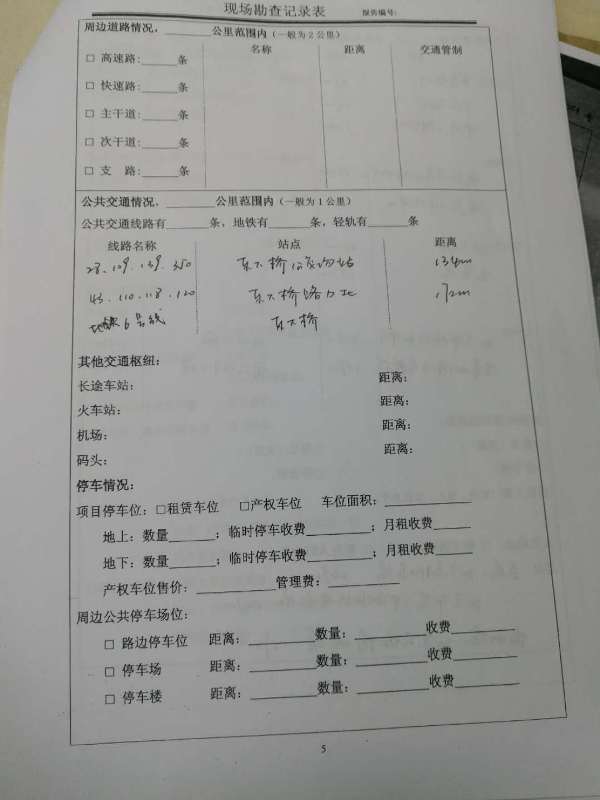 现场勘查记录表 报告编号:
周边道路情况，________公里范围内（一般为2公里）
名称 距离 交通管制
□ 高速路:______条
□ 快速路:______条
□ 主干道:______条
□ 次干道:______条
□ 支 路:______条
公共交通情况，________公里范围内（一般为1公里）
公共交通线路有_______条，地铁有______条，轻轨有______条
线路名称 站点 距离
28.109.139.350 东大桥
43.110.118.120 东大桥路口北
地铁6号线 东大桥
其他交通枢纽：
长途车站： 距离：
火车站： 距离：
机场： 距离：
码头： 距离：
停车情况：
项目停车位：□租赁车位 □产权车位 车位面积：____________
地上：数量_______；临时停车收费__________；月租收费______
地下：数量_______；临时停车收费__________；月租收费______
产权车位售价：____________管理费：__________
周边公共停车场位：
□ 路边停车位 距离：__________数量：__________收费_________
□ 停车场 距离：__________数量：__________收费_________
□ 停车楼 距离：__________数量：__________收费_________
5